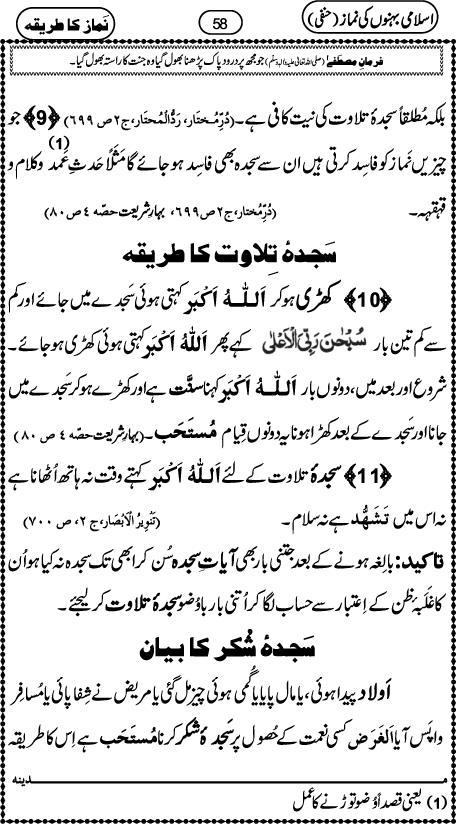 اسلامی بہنوں کی نماز (حنفی)
58
نماز کا طریقہ
فرمانِ مصطفےٰ (صلی اللہ تعالیٰ علیہ والہ وسلم) جو مجھ پر درودِ پاک پڑھنا بھول گیا وہ جنت کا راستہ بھول گیا۔
بلکہ مُطلَقاً سجدۂ تلاوت کی نیت کافی ہے۔ (دُرِّمُختار، رَدُّالْمُحتَار، ج۲ ص ۶۹۹) ﴿9﴾ جو
چیزیں نَماز کو فاسِد کرتی ہیں ان سے سجدہ بھی فاسد ہو جائے گا مَثَلاً حدثِ عَمد (1) وکلام و
قہقہہ۔ (دُرِّمُختار، ج۲ ص ۶۹۹، بہارِ شریعت حصّہ ۴ ص ۸۰)
سَجدۂ تِلاوت کا طریقہ
﴿10﴾ کھڑی ہو کر اَللّٰہُ اَکْبَر کہتی ہوئی سَجدے میں جائے اور کم
سے کم تین بار سُبْحٰنَ رَبِّیَ الْاَعْلٰی کہے پھر اَللّٰہُ اَکْبَر کہتی ہوئی کھڑی ہو جائے۔
شروع اور بعد میں، دونوں بار اَللّٰہُ اَکْبَر کہنا سنَّت ہے اور کھڑے ہو کر سَجدے میں
جانا اور سَجدے کے بعد کھڑا ہونا یہ دونوں قِیام مُستَحَب۔ (بہارِ شریعت حصّہ ۴ ص ۸۰)
﴿11﴾ سجدۂ تلاوت کے لئے اَللّٰہُ اَکْبَر کہتے وقت نہ ہاتھ اُٹھانا ہے
نہ اس میں تَشَہُّد ہے نہ سلام۔ (تَنْوِیرُ الْاَبْصَار، ج ۲، ص ۷۰۰)
تاکید: بالِغہ ہونے کے بعد جتنی بار بھی آیاتِ سجدہ سُن کر ابھی تک سجدہ نہ کیا ہو اُن
کا غَلَبۂ ظن کے اِعتبار سے حساب لگا کر اُتنی بار با وُضو سجدۂ تلاوت کر لیجئے۔
سَجدۂ شُکر کا بیان
اَولاد پیدا ہوئی، یا مال پایا یا گُمی ہوئی چیز مل گئی یا مریض نے شِفا پائی یا مُسافِر
واپَس آیا اَلغَرَض کسی نعمت کے حُصول پر سَجدۂ شکر کرنا مُستَحَب ہے اِس کا طریقہ
مـــدینہ
(1) یعنی قصداً وُضو توڑنے کا عمل